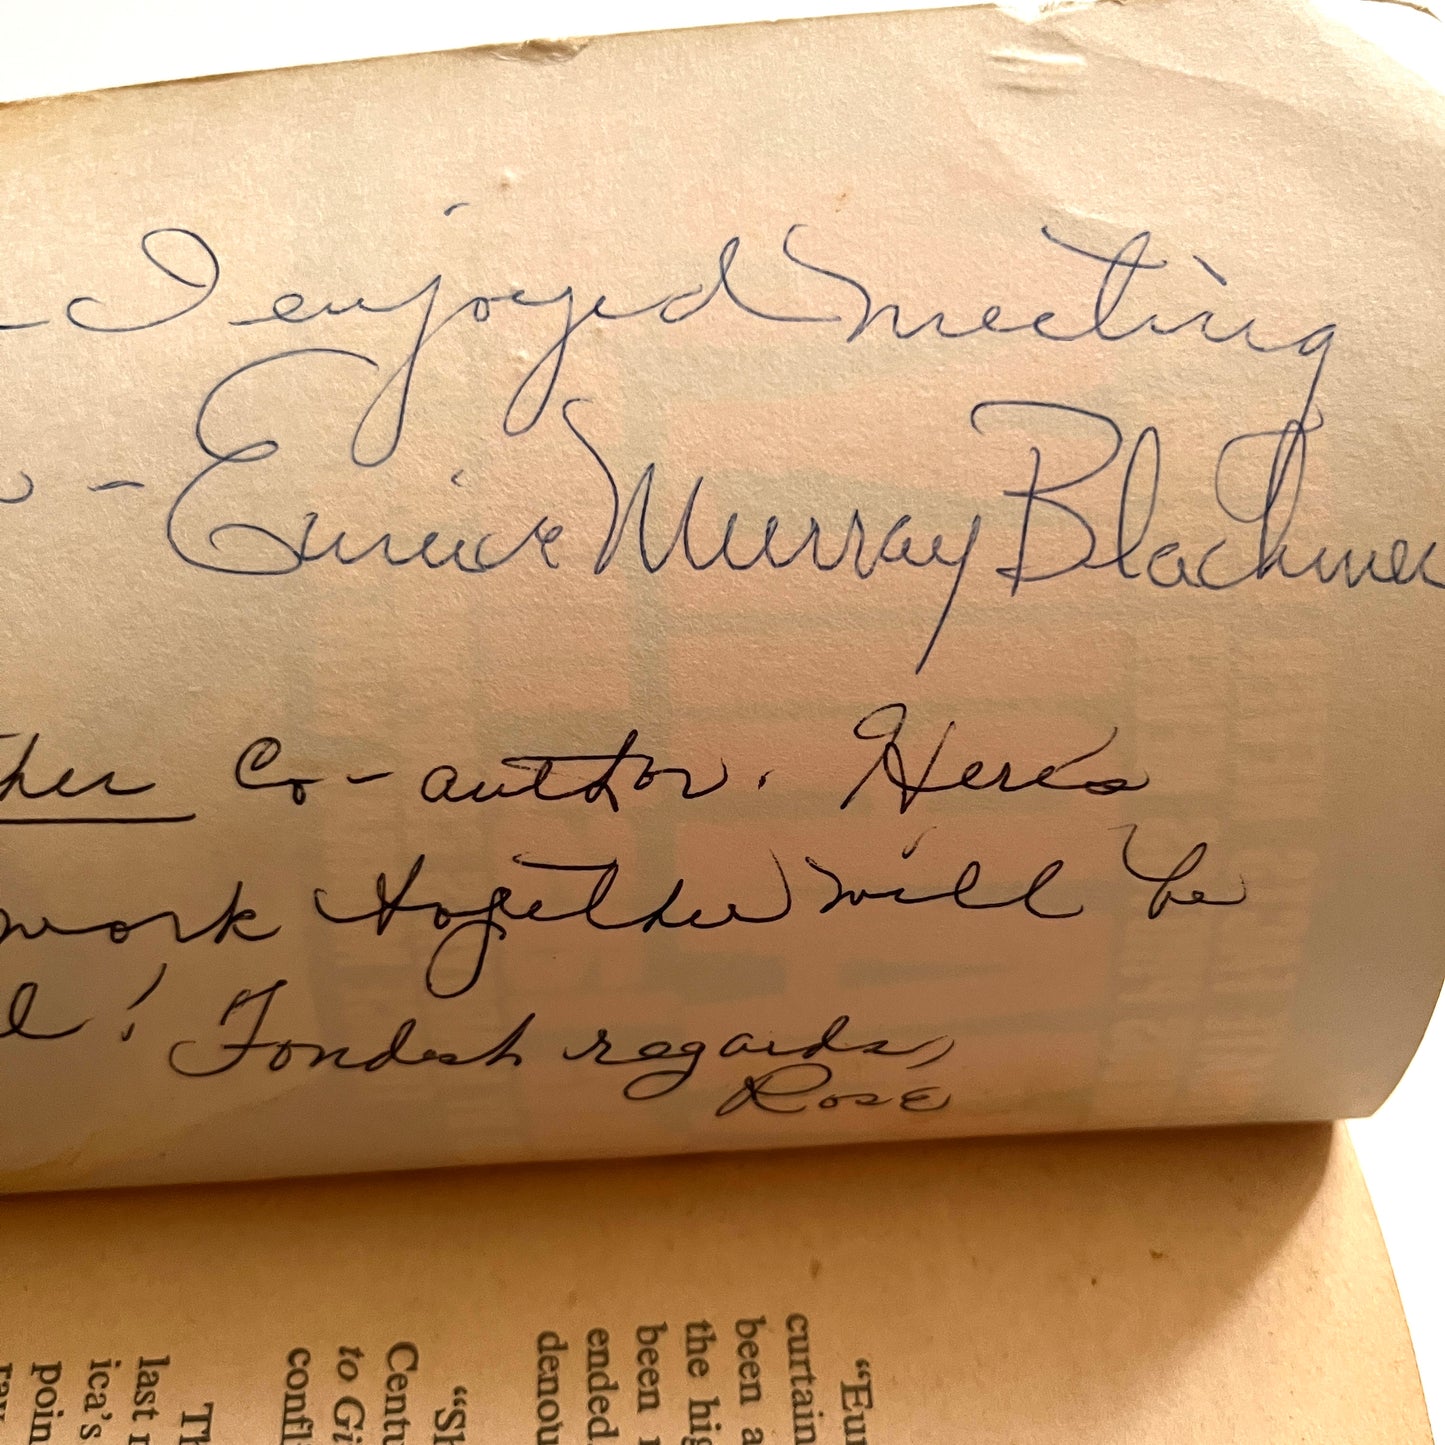 I enjoyed meeting
- Eunice Murray Blackmer
ther co-author. Here's
work together will be
l! Fondest regards,
Rose
"Eur
curtain
been a
the hig
been r
ended.
denou
"Sh
Centu
to Gi
confl
Th
last r
ica's
poin